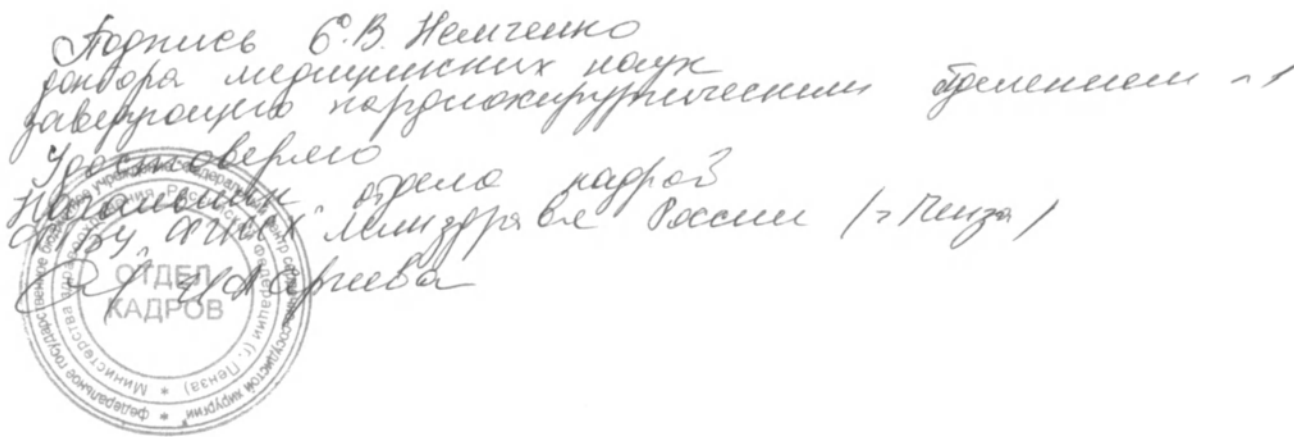 Подпись Е.В. Немченко
доктора медицинских наук
заведующего кардиохирургическим отделением №1
Удостоверяю
Начальник отдела кадров
ФГБУ "ФЦССХ" Минздрава России (г. Пенза)
ОТДЕЛ
КАДРОВ
федеральное государственное бюджетное учреждение "Федеральный центр сердечно-сосудистой хирургии"
Министерства здравоохранения Российской Федерации (г. Пенза)